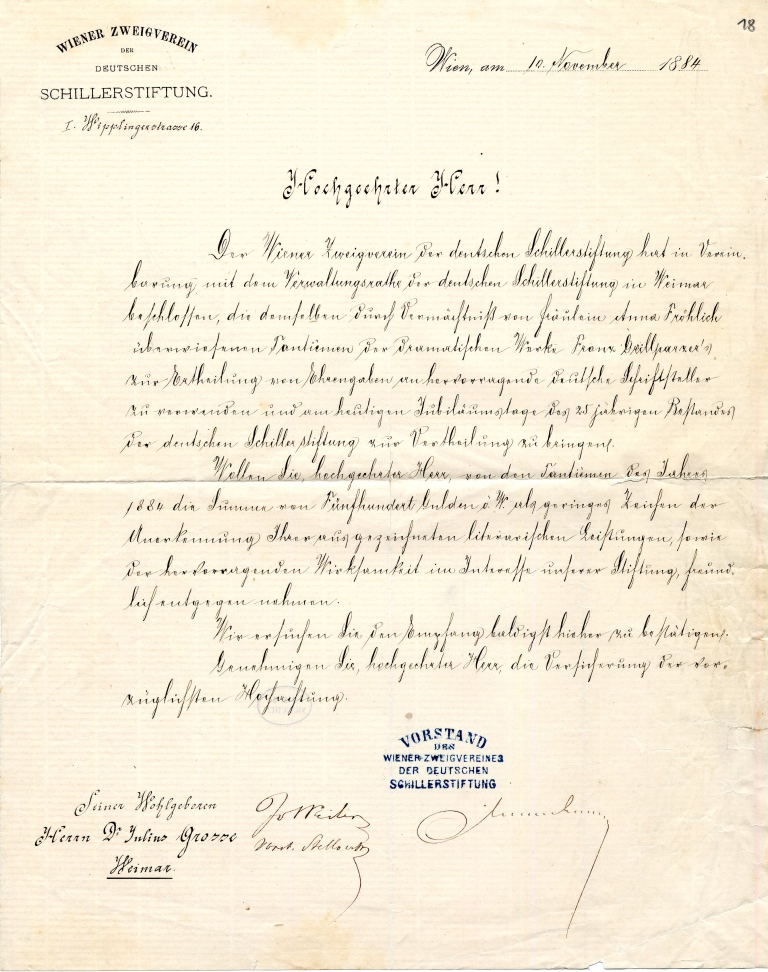 18
WIENER ZWEIGVEREIN
DER
DEUTSCHEN
SCHILLERSTIFTUNG.
I. Wipplingerstrasse 16.
Wien, am 10. November 1884
Hochgeehrter Herr!
Der Wiener Zweigverein der deutschen Schillerstiftung hat in Verein-
barung mit dem Verwaltungsrathe der deutschen Schillerstiftung in Weimar
beschlossen, die demselben durch Vermächtniß von Fräulein Anna Fröhlich
überwiesenen Tantièmen der dramatischen Werke Franz Grillparzer's
zur Ertheilung von Ehrengaben an hervorragende deutsche Schriftsteller
zu verwenden und am heutigen Jubiläumstage des 25 jährigen Bestandes
der deutschen Schillerstiftung zur Vertheilung zu bringen.
Wollen Sie, hochgeehrter Herr, von den Tantièmen des Jahres
1884 die Summe von Fünfhundert Gulden ö. W. als geringes Zeichen der
Anerkennung Ihrer ausgezeichneten literarischen Leistungen, sowie
der hervorragenden Wirksamkeit im Interesse unserer Stiftung, freund-
lich entgegen nehmen.
Wir ersuchen Sie den Empfang baldigst hieher zu bestätigen.
Genehmigen Sie, hochgeehrter Herr, die Versicherung der vor-
züglichsten Hochachtung.
VORSTAND
DES
WIENER ZWEIGVEREINES
DER DEUTSCHEN
SCHILLERSTIFTUNG
Seiner Wohlgeboren
Herrn Dr. Julius Grosse
Weimar.
Jos Weilen